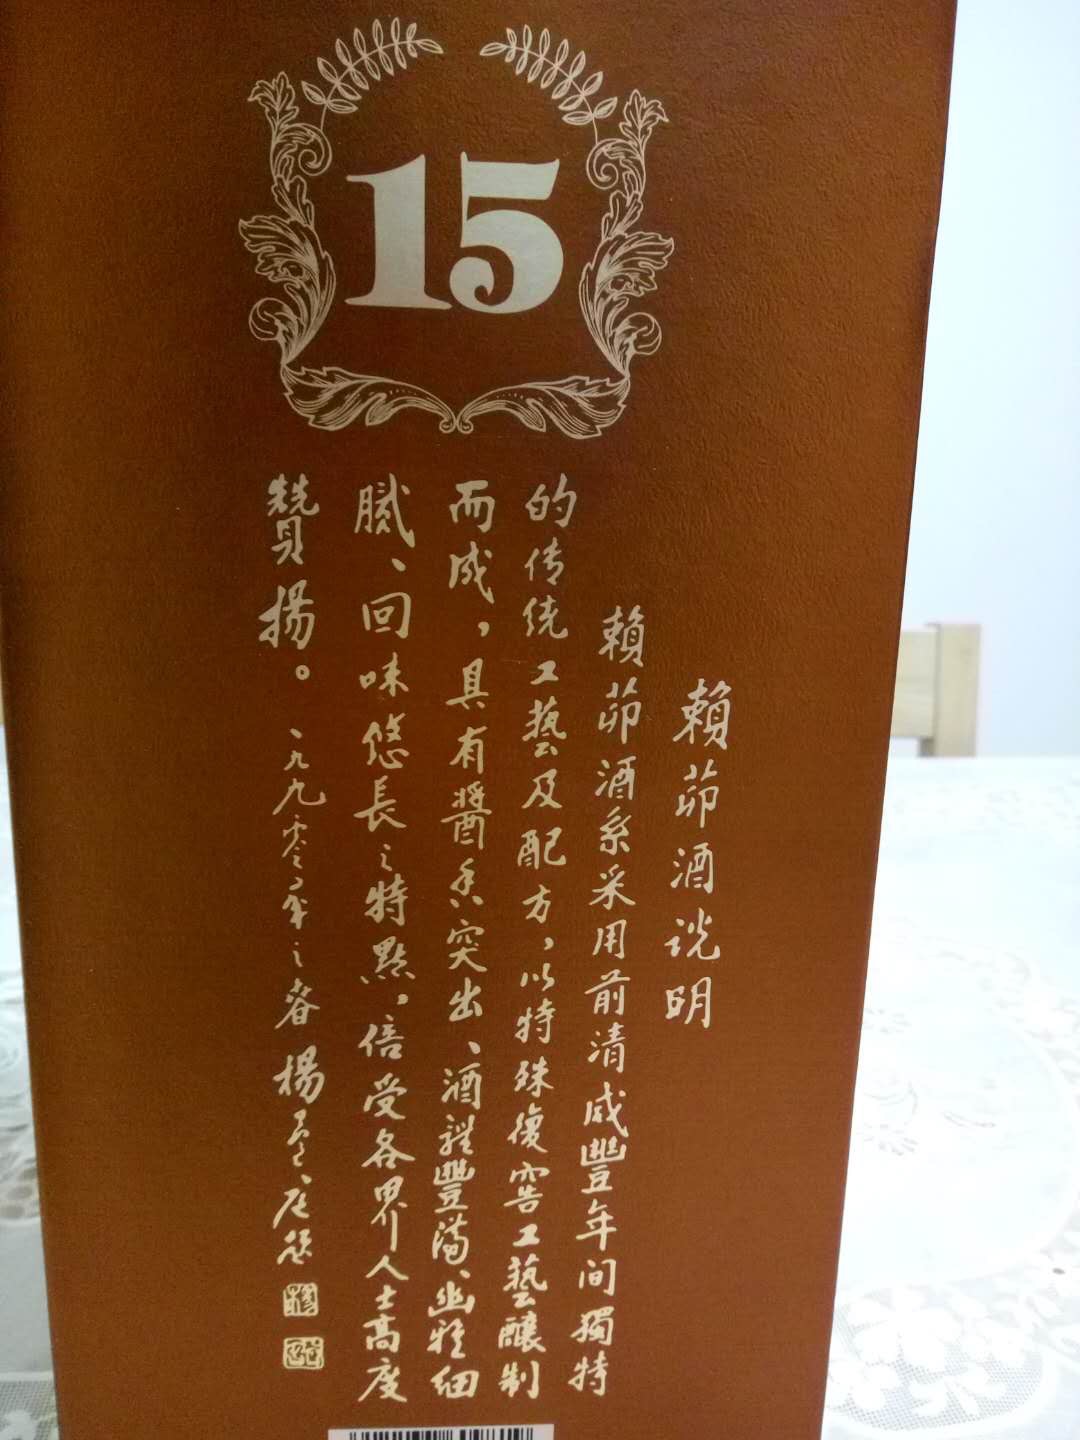 15
賴茆酒说明
賴茆酒系采用前清咸豐年间獨特
的传统工藝及配方，以特殊復窖工藝釀制
而成，具有醬香突出、酒體豐滿、幽雅细
腻、回味悠長之特點，倍受各界人士高度
贊揚。一九九零年之春 楊